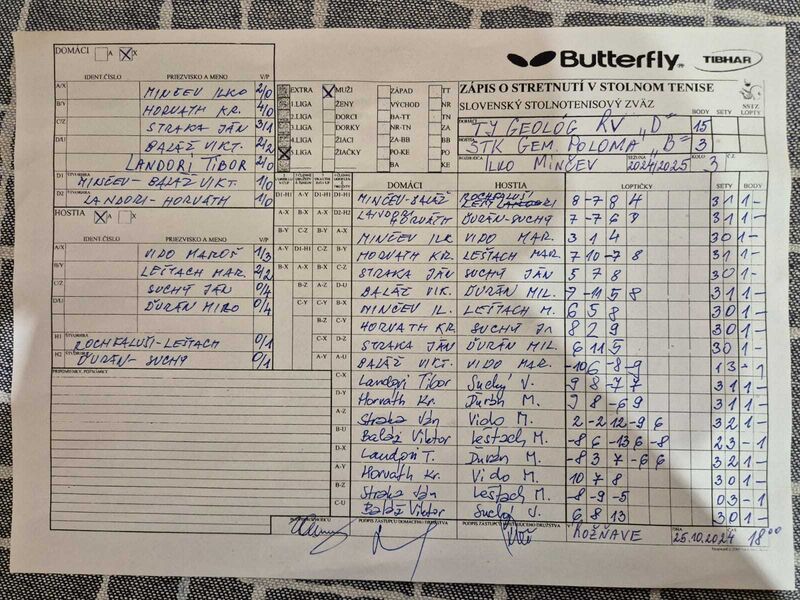 DOMÁCI A X
IDENT.ČÍSLO PRIEZVISKO A MENO V/P
A/X MINČEV ILKO 2/0
B/Y HORVATH KR. 4/0
C/Z STRAKA JÁN 3/1
D/U BALÁŽ VIKT. 2/2
LANDORI TIBOR 2/0
D1 ŠTVORHRA MINČEV-BALÁŽ VIKT. 1/0
D2 LANDORI-HORVÁTH 1/0
HOSTIA A X
IDENT.ČÍSLO PRIEZVISKO A MENO V/P
A/X VIDO MAROŠ 1/3
B/Y LEŠTACH MAR. 2/2
C/Z SUCHÝ JÁN 0/4
D/U ĎURÁN MIRO 0/4
H1 ŠTVORHRA ROCHFALUŠI-LEŠTACH 0/1
H2 ĎURÁN-SUCHÝ 0/1
PRIPOMIENKY, POZNÁMKY
Butterfly TIBHAR
ZÁPIS O STRETNUTÍ V STOLNOM TENISE
SLOVENSKÝ STOLNOTENISOVÝ ZVÄZ
SSTZ
BODY SETY LOPTY
DOMÁCI TJ GEOLÓG RV „D" 15
HOSTIA STK GEM. POLOMA „B" 3
ROZHODCA ILKO MINČEV SEZÓNA 2024/2025 KOLO 3
EXTRA MUŽI ZÁPAD TT
1.LIGA ŽENY VÝCHOD NR
2.LIGA DORCI BA-TT TN
3.LIGA DORKY NR-TN ZA
4.LIGA ŽIACI ZA-BB BB
5.LIGA ŽIAČKY PO-KE PO
BA KE
DOMÁCI HOSTIA LOPTIČKY SETY BODY
D1-H1 MINČEV-BALÁŽ ROCHFALUŠI LEŠT. 8 -7 8 4 3 1 1 -
D2-H2 LANDORI HORVÁTH ĎURÁN-SUCHÝ 7 -7 6 9 3 1 1 -
MINČEV ILK VIDO MAR. 3 1 4 3 0 1 -
HORVATH KR. LEŠTACH MAR. 7 -10 -7 8
STRAKA JÁN SUCHÝ JÁN 5 7 8 3 0 1 -
BALÁŽ VIK. ĎURÁN MIL. 7 -11 5 8 3 1 1 -
MINČEV IL. LEŠTACH M. 6 5 8 3 0 1 -
HORVATH KR. SUCHÝ JN 8 2 9 3 0 1 -
STRAKA JÁN ĎURÁN MIL. 6 11 5 3 0 1 -
BALÁŽ VIKT. VIDO MAR. -10 6 -8 -9 1 3 - 1
C-X Landori Tibor Suchý J. 9 8 -7 7 3 1 1 -
D-Y Horváth Kr. Ďurán M. 9 8 -6 9 3 1 1 -
A-Z Straka Ján Vido M. 2 -2 12 -9 6 3 2 1 -
B-U Baláž Viktor Leštach M. -8 6 -13 6 -8 2 3 - 1
D-X Landori T. Ďurán M. -8 3 7 -6 6 3 2 1 -
A-Y Horváth Kr. Vido M. 10 7 8 3 0 1 -
B-Z Straka Ján Leštach M. -8 -9 -5 0 3 - 1
C-U Baláž Viktor Suchý J. 6 8 13 3 0 1 -
PODPIS ZÁSTUPCU DOMÁCEHO DRUŽSTVA
V ROŽŇAVE DŇA 25.10.2024 18⁰⁰